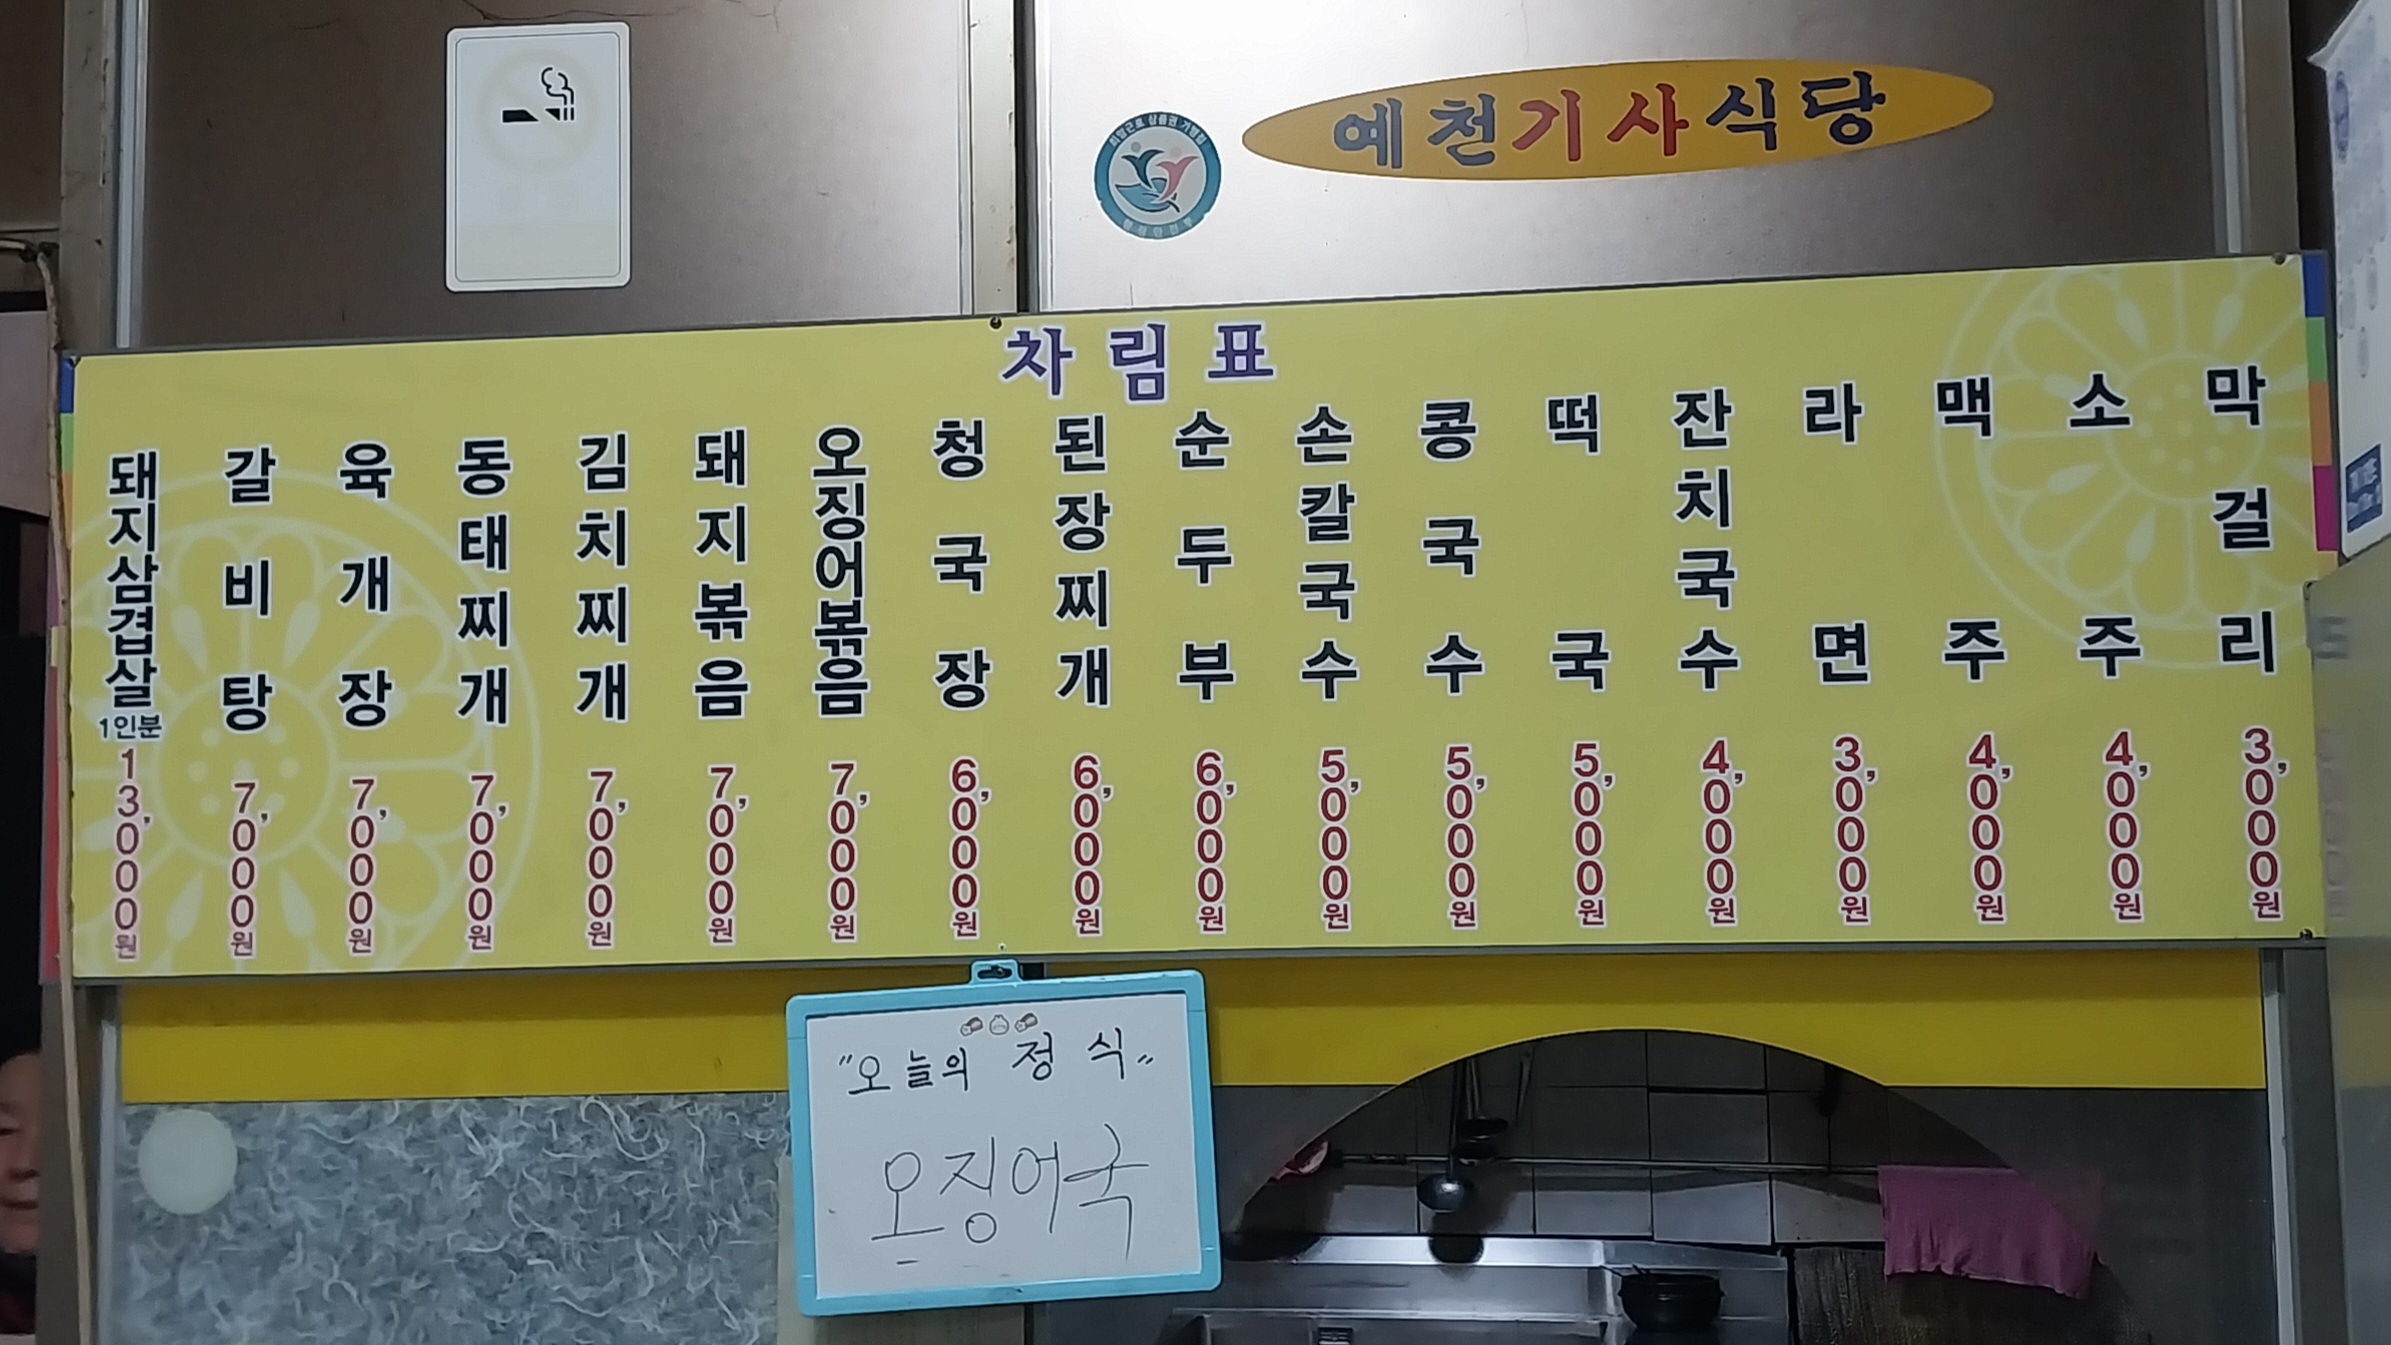 예천기사식당
희망근로 상품권 가맹점
행정안전부
차림표
돼지삼겹살 1인분 13,000원
갈비탕 7,000원
육개장 7,000원
동태찌개 7,000원
김치찌개 7,000원
돼지볶음 7,000원
오징어볶음 7,000원
청국장 6,000원
된장찌개 6,000원
순두부 6,000원
손칼국수 5,000원
콩국수 5,000원
떡국 5,000원
잔치국수 4,000원
라면 3,000원
맥주 4,000원
소주 4,000원
막걸리 3,000원
"오늘의 정식"
오징어국